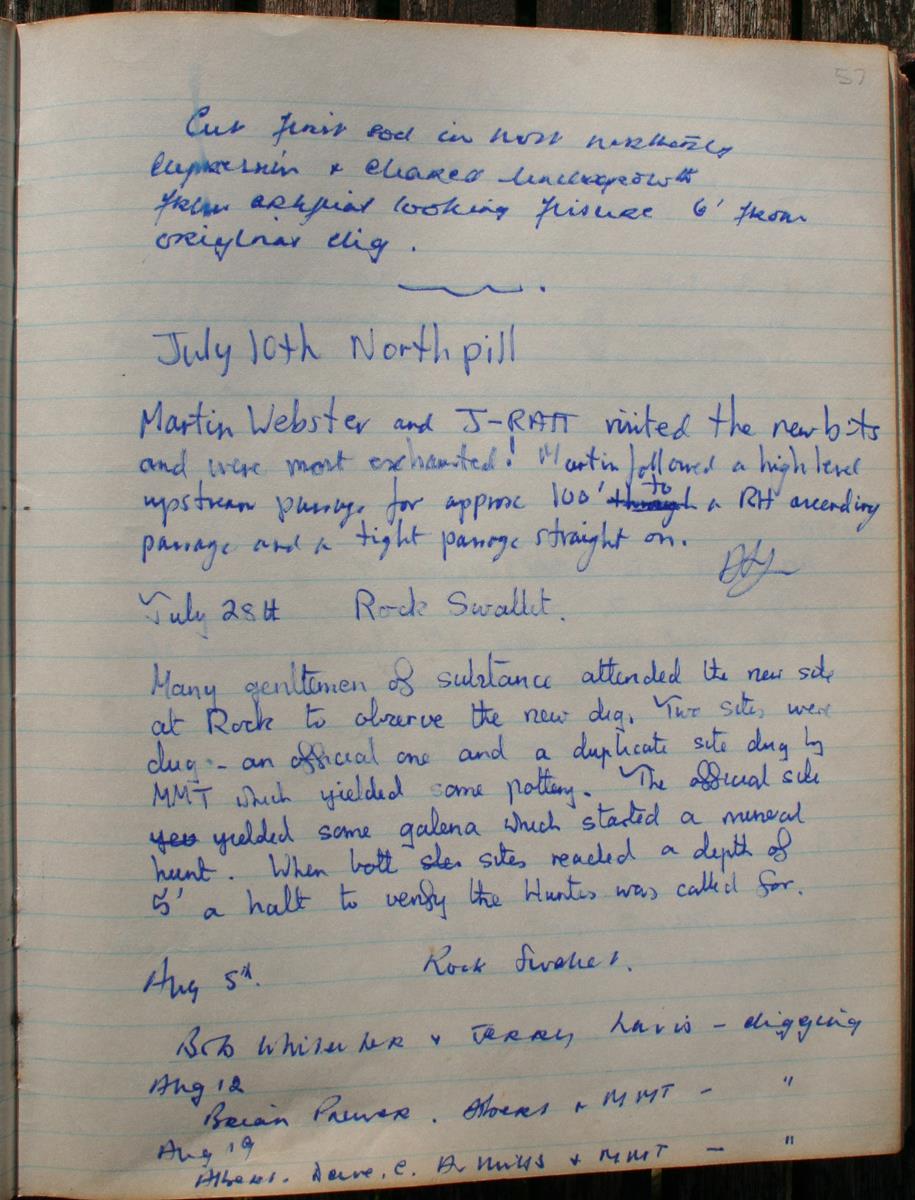 57
Cut first sod in most northerly
depression & cleared undergrowth
from looking fissure 6' from
original dig.
July 10th North pill
Martin Webster and J-RAT visited the new bits
and were most exhausted! Martin followed a high level
upstream passage for approx 100' through to a RH ascending
passage and a tight passage straight on.
July 28th Rock Swallet.
Many gentlemen of substance attended the new site
at Rock to observe the new dig. Two sites were
dug - an official one and a duplicate site dug by
MMT which yielded some pottery. The official site
yes yielded some galena which started a mineral
hunt. When both sites reached a depth of
5' a halt to verify the Hunters was called for.
Aug 5th. Rock Swallet.
Bob Whitaker & Jerry Davis - digging
Aug 12
Brian Prewer. & MMT - "
Aug 19
Albert. Dave. C. A. Mills & MMT - "